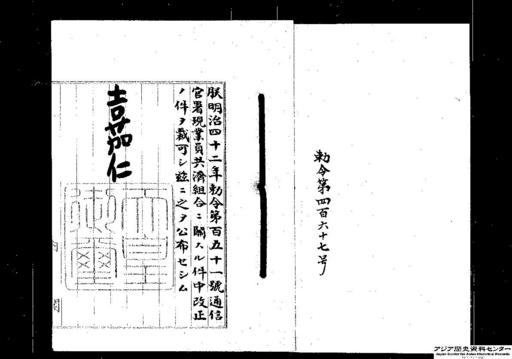 勅令第四百六十七号
朕明治四十二年勅令第百五十一號通信
官署現業員共濟組合ニ關スル件中改正
ノ件ヲ裁可シ茲ニ之ヲ公布セシム
嘉仁
天皇
御璽
アジア歴史資料センター
Japan Center for Asian Historical Records